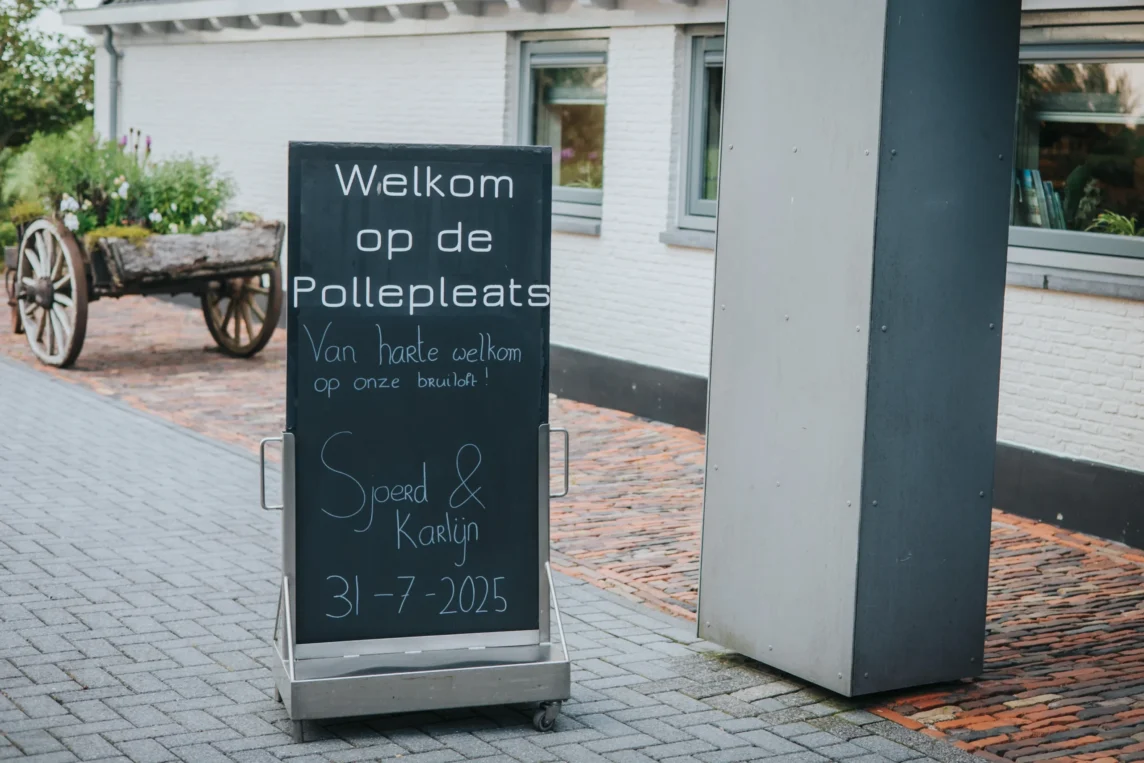 Welkom
op de
Pollepleats
Van harte welkom
op onze bruiloft!
Sjoerd &
Karlijn
31-7-2025